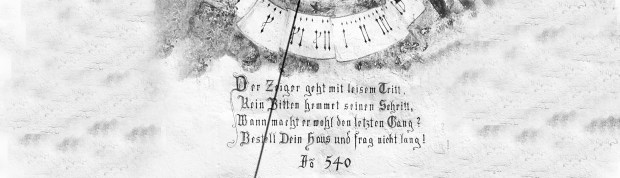 Der Zeiger geht mit leisem Tritt,
Kein Bitten hemmet seinen Schritt,
Wann macht er wohl den letzten Gang?
Bestell Dein Haus und frag nicht lang!
540